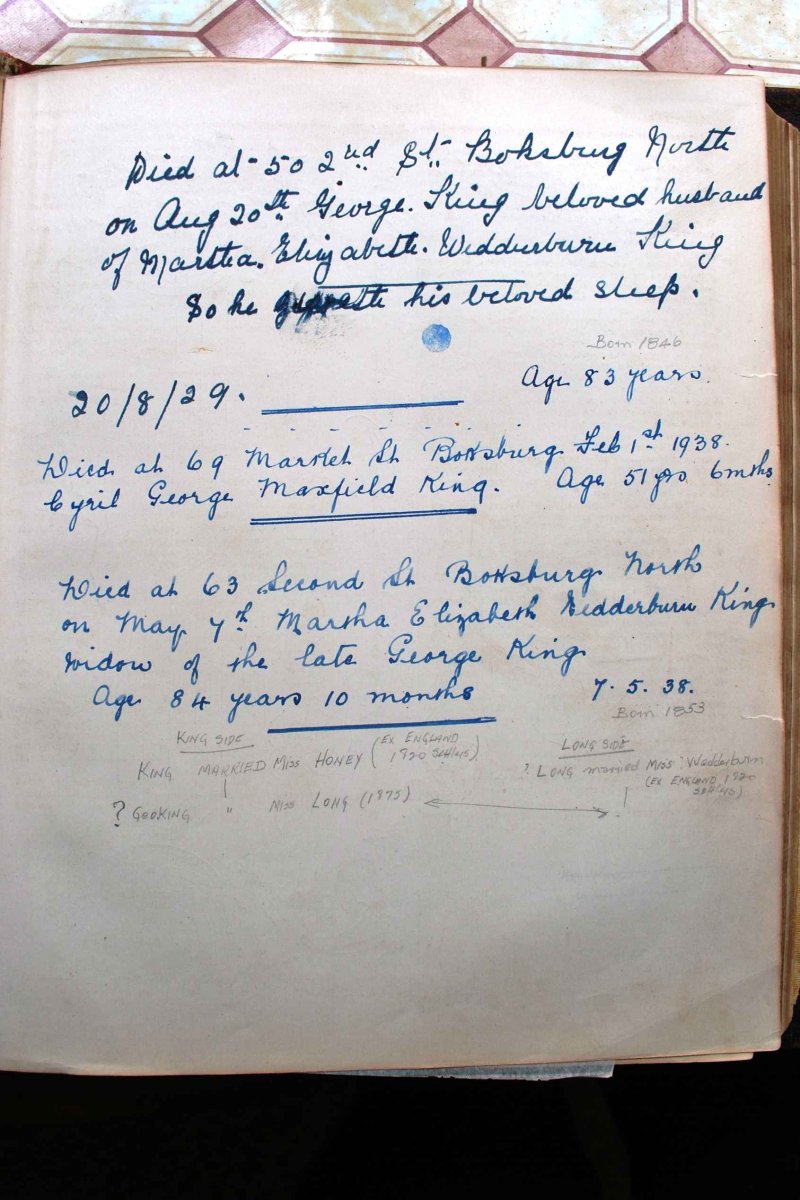 Died at 50 2nd St. Boksburg North
on Aug 20th George. King beloved husband
of Martha. Elizabeth. Wedderburn King
So he giveth his beloved sleep.
Born 1846
Age 83 years.
20/8/29.
Died at 69 Market St Boksburg Feb 1st 1938.
Cyril George Maxfield King. Age 51 yrs 6 mths
Died at 63 Second St Boksburg North
on May 7th Martha Elizabeth Wedderburn King
widow of the late George King
Age 84 years 10 months
7.5.38.
Born 1853
KING SIDE
KING MARRIED MISS HONEY (EX ENGLAND
1820 Settlers)
? GEO KING " MISS LONG (1875)
LONG SIDE
? LONG married MISS Wedderburn
(EX ENGLAND 1820
Settlers)